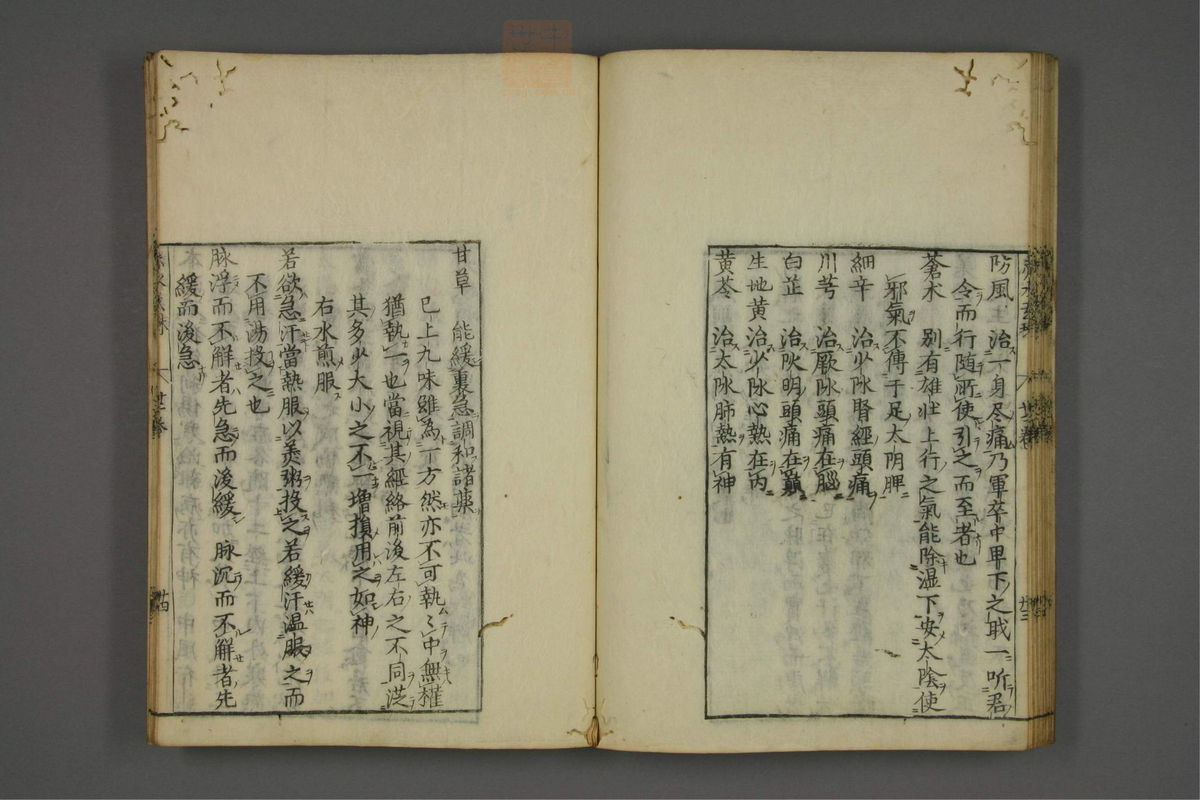 防風主治一身尽痛乃軍卒中卑下之戝一听君
令而行随所使引之而至者也
蒼朮　別有雄壮上行之氣能除湿下安太陰使
邪氣不傳于足太阴脾
細辛　治少阴腎經頭痛
川芎　治厥阴頭痛在腦
白芷　治阳明頭痛在額
生地黄　治少阴心熱在内
黄芩　治太阴肺熱有神
甘草　能緩裏急調和諸藥
已上九味雖為一方然亦不可執〻中無權
猶執一也當視其經絡前後左右之不同從
其多少大小之不一増損用之如神
右水煎服
若欲急汗當熱服以羙粥投之若緩汗温服之而
不用湯投之也
脉浮而不解者先急而後緩　脉沉而不解者先
緩而後急
廿四